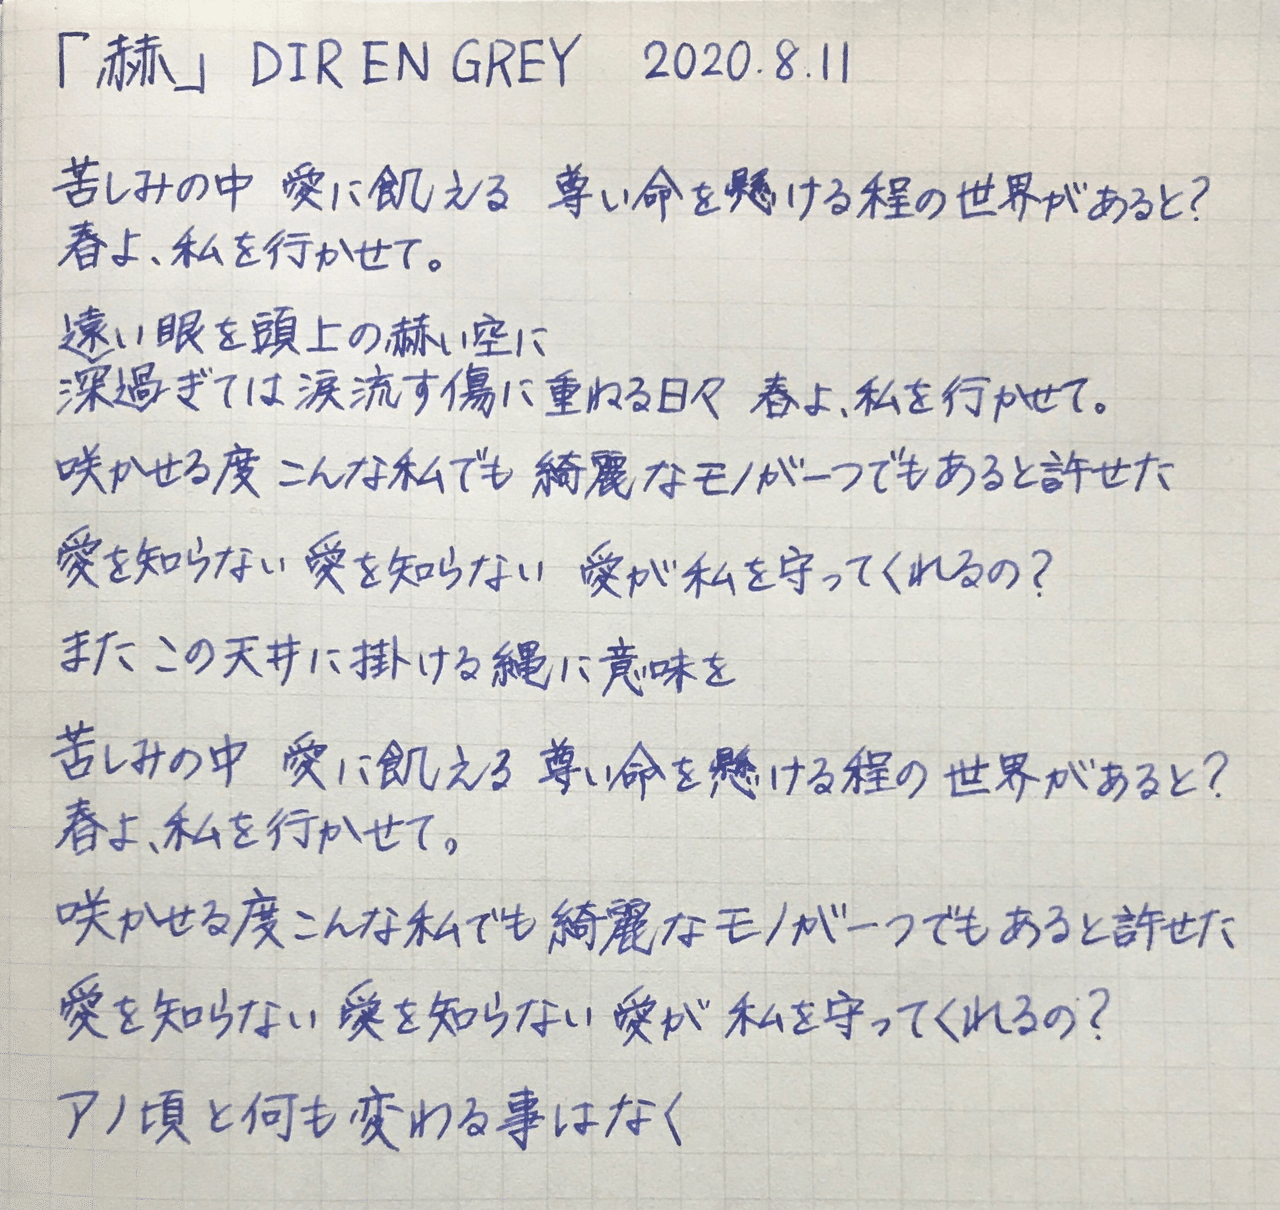 「赫」 DIR EN GREY 2020.8.11
苦しみの中 愛に飢える 尊い命を懸ける程の世界があると?
春よ、私を行かせて。
遠い眼を頭上の赫い空に
深過ぎては涙流す傷に重ねる日々 春よ、私を行かせて。
咲かせる度 こんな私でも 綺麗なモノが一つでもあると許せた
愛を知らない 愛を知らない 愛が私を守ってくれるの?
またこの天井に掛ける縄に意味を
苦しみの中 愛に飢える 尊い命を懸ける程の世界があると?
春よ、私を行かせて。
咲かせる度こんな私でも綺麗なモノが一つでもあると許せた
愛を知らない 愛を知らない 愛が私を守ってくれるの?
アノ頃と何も変わる事はなく